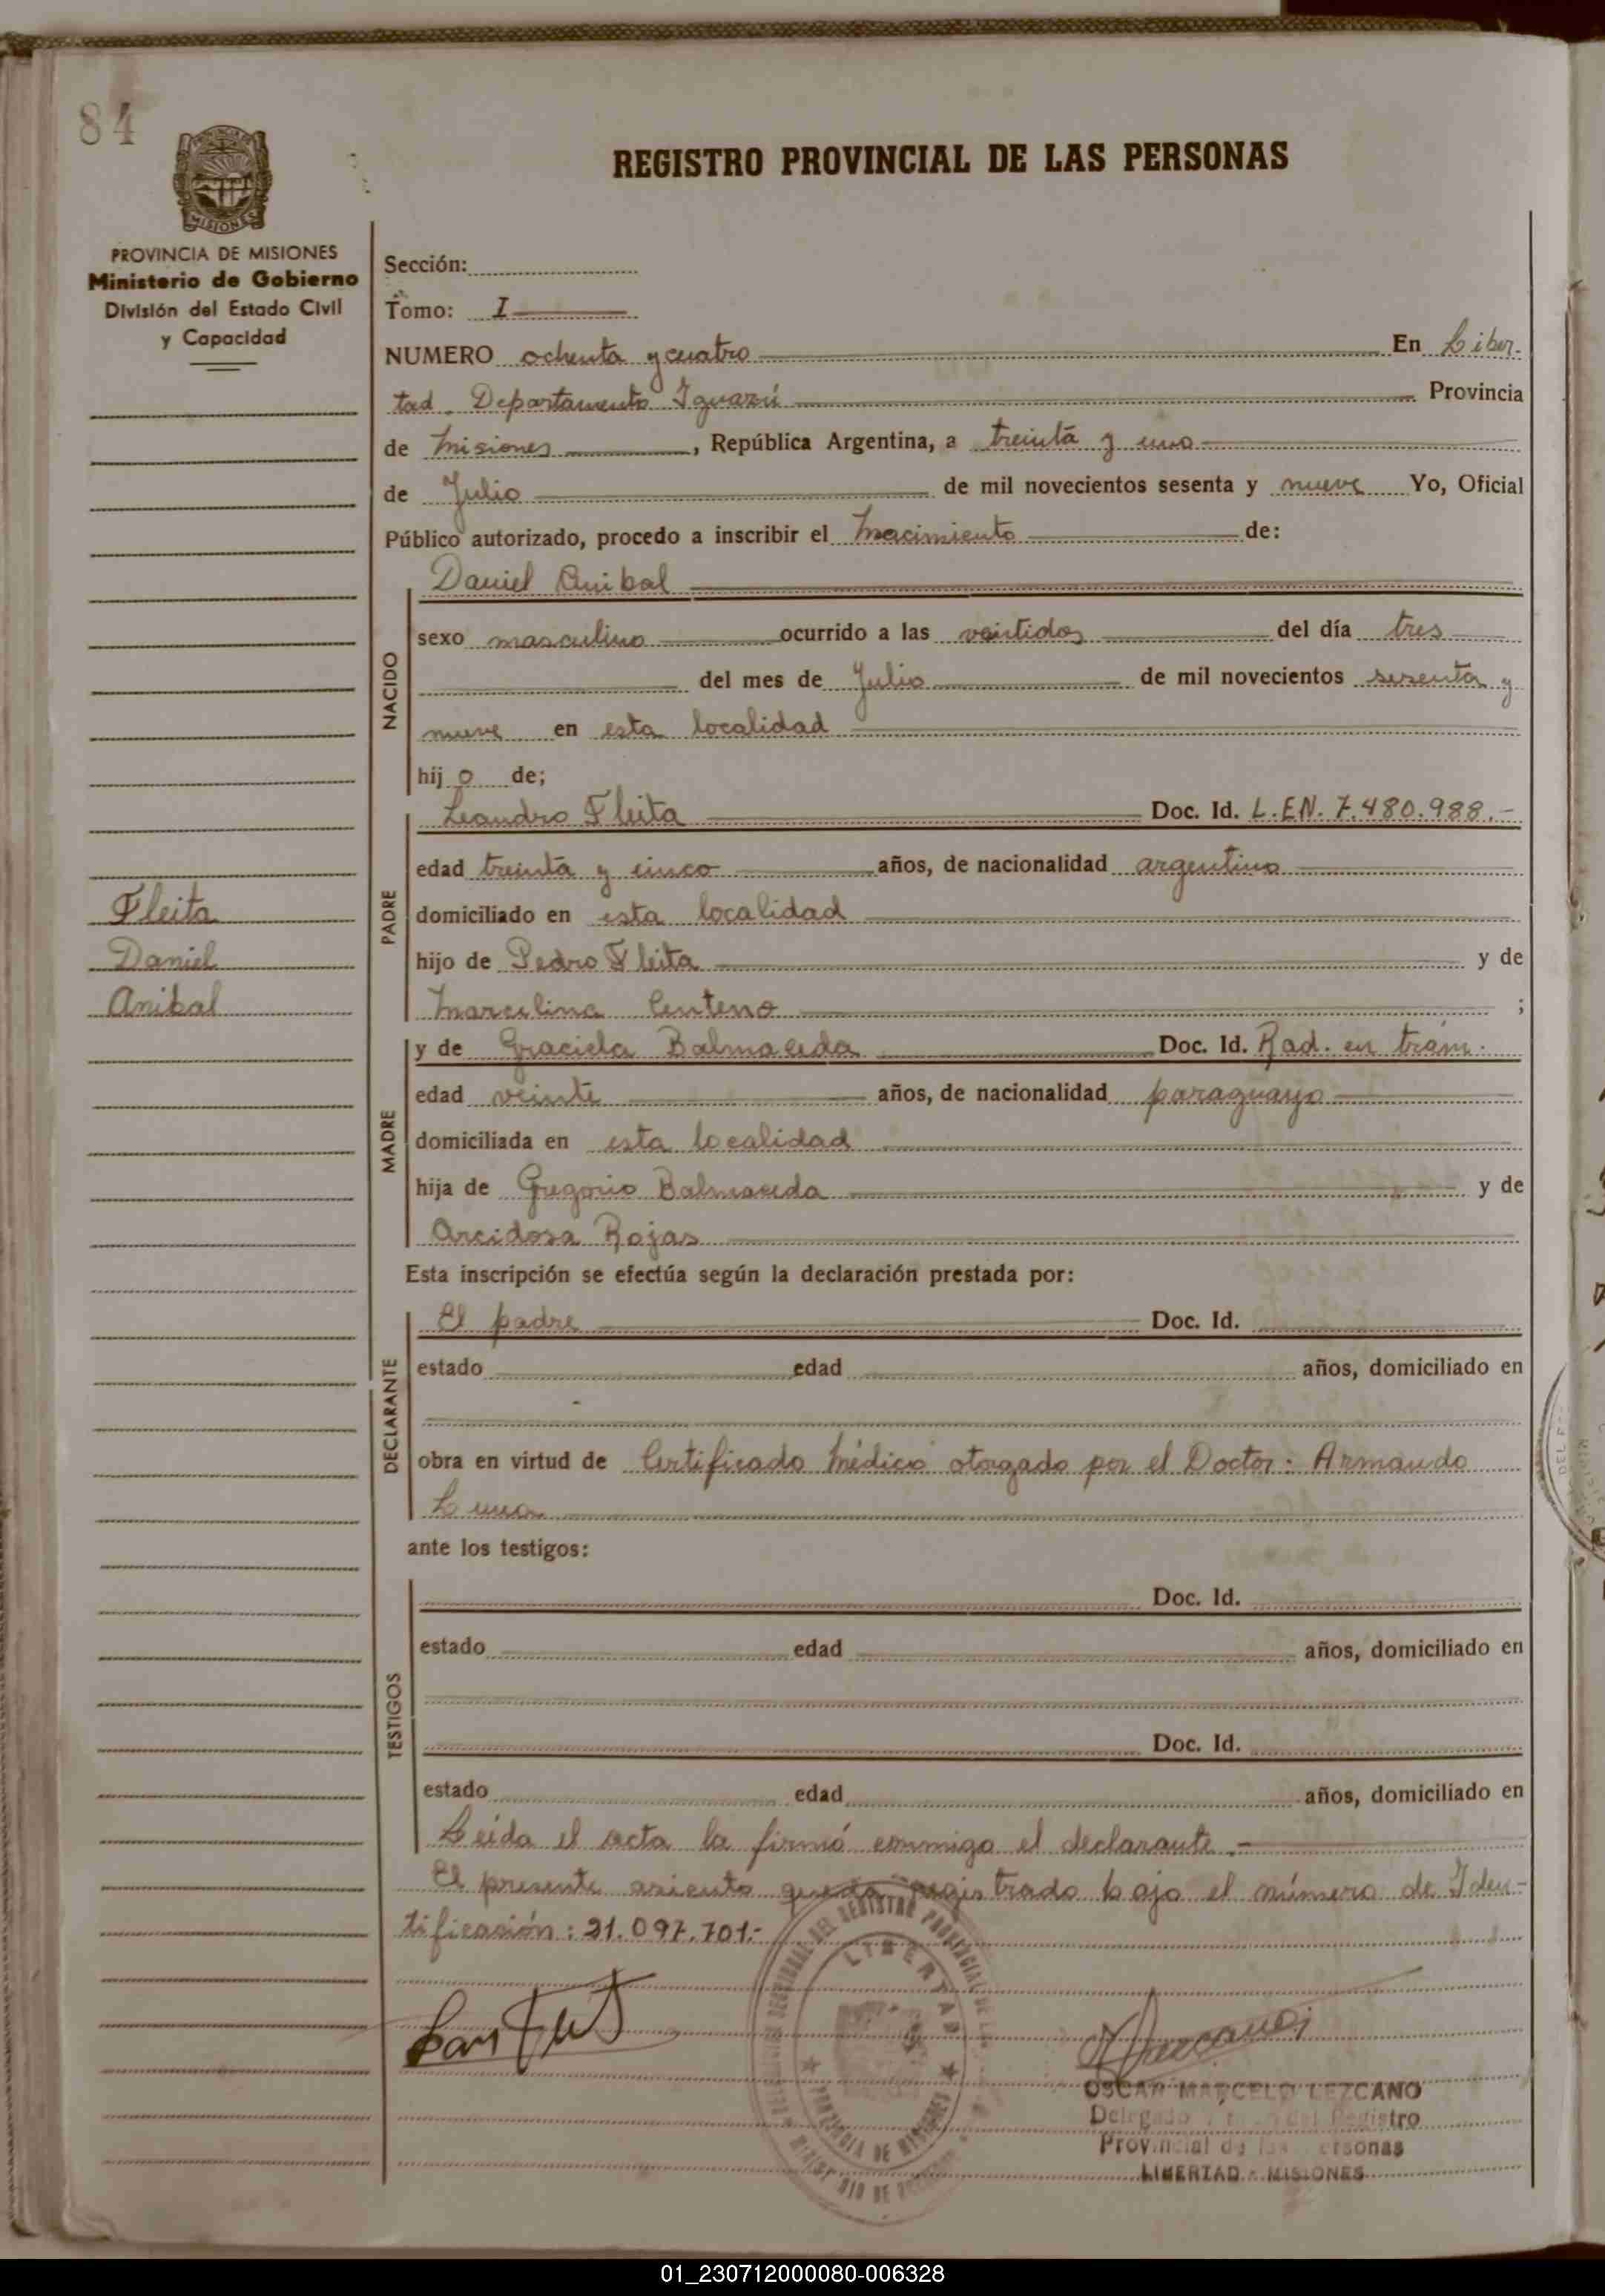 84
PROVINCIA DE MISIONES
Ministerio de Gobierno
División del Estado Civil
y Capacidad
REGISTRO PROVINCIAL DE LAS PERSONAS
Sección:
Tomo: I
NUMERO ochenta y cuatro En Liber-
tad. Departamento Iguazú Provincia
de Misiones, República Argentina, a treinta y uno
de Julio de mil novecientos sesenta y nueve Yo, Oficial
Público autorizado, procedo a inscribir el Nacimiento de:
Daniel Anibal
NACIDO
sexo masculino ocurrido a las veintidos del día tres
del mes de Julio de mil novecientos sesenta y
nueve en esta localidad
hij o de;
Leandro Fleita Doc. Id. L.EN. 7.480.988.-
PADRE
edad treinta y cinco años, de nacionalidad argentino
domiciliado en esta localidad
hijo de Pedro Fleita y de
Marcelina Centeno ;
Fleita
Daniel
Anibal
MADRE
y de Graciela Balmaceda Doc. Id. Rad. en trám.
edad veinte años, de nacionalidad paraguaya
domiciliada en esta localidad
hija de Gregorio Balmaceda y de
Arcidosa Rojas
Esta inscripción se efectúa según la declaración prestada por:
El padre Doc. Id.
DECLARANTE
estado edad años, domiciliado en
obra en virtud de Certificado Médico otorgado por el Doctor: Armando
Luna
ante los testigos:
TESTIGOS
Doc. Id.
estado edad años, domiciliado en
Doc. Id.
estado edad años, domiciliado en
Leida el acta la firmó conmigo el declarante.-
El presente asiento queda registrado bajo el número de Iden-
tificación: 21.097.701.-
LIBERTAD
PROVINCIA DE MISIONES
OSCAR MARCELO LEZCANO
Registro
Provincial de las Personas
LIBERTAD - MISIONES
01_230712000080-006328